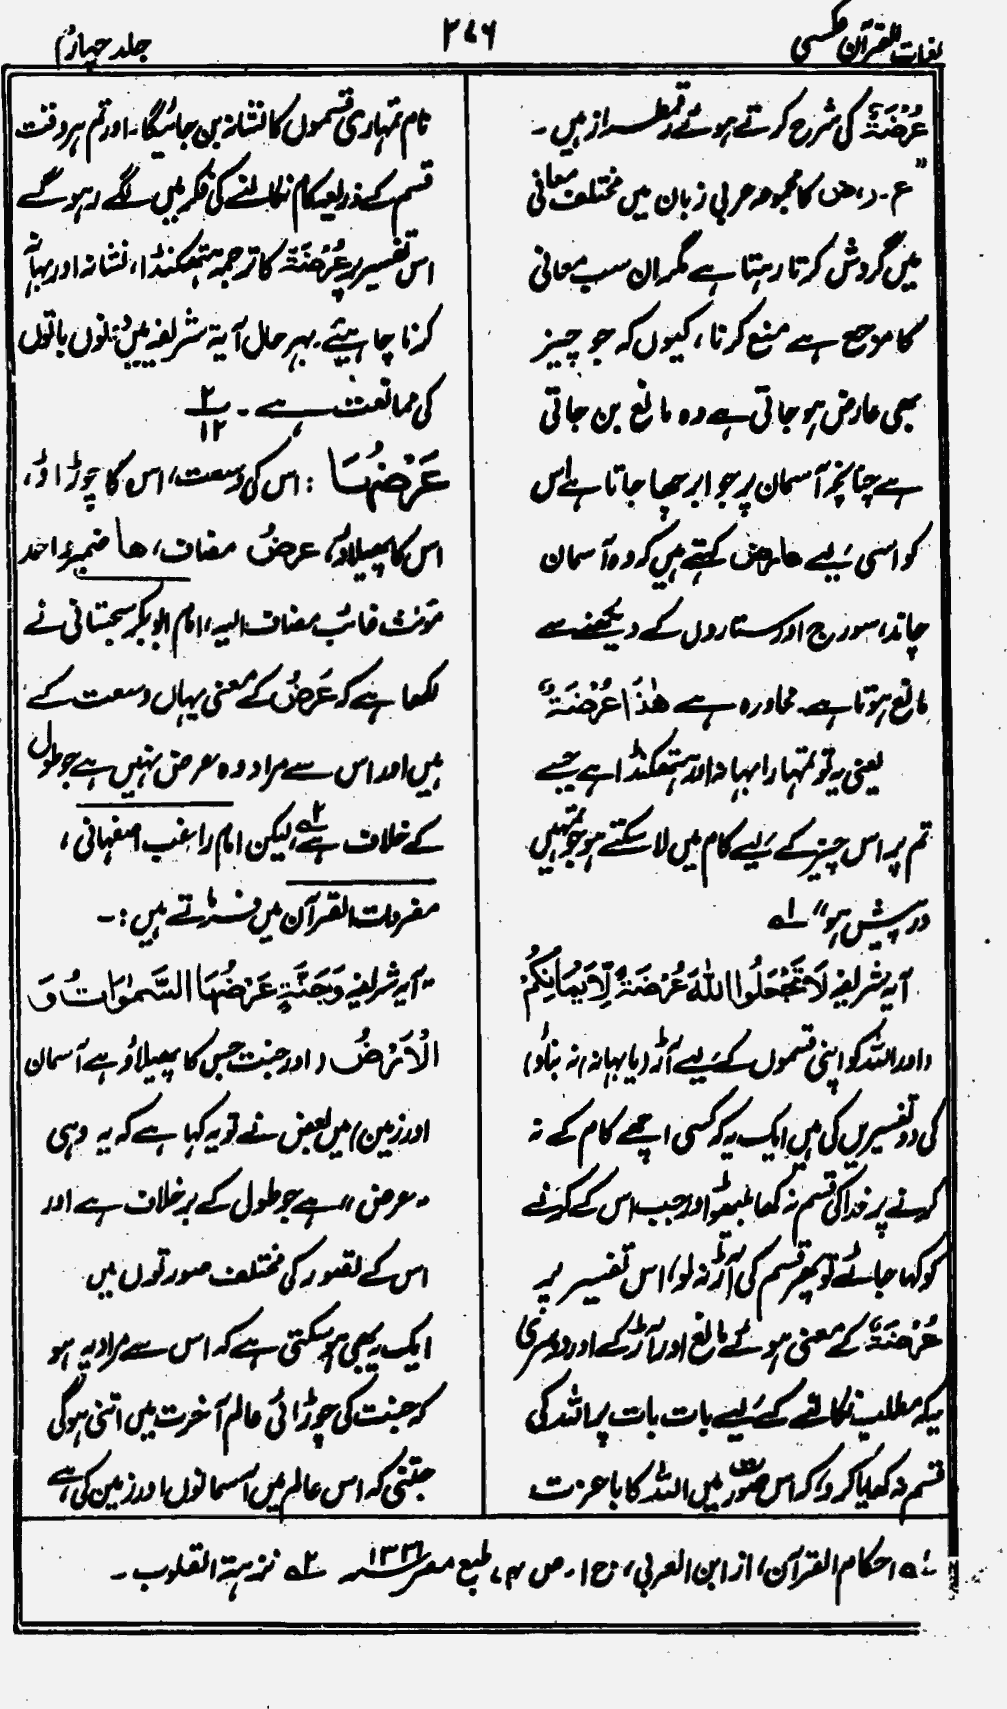 لغات القرآن عکسی
۲۷۶
جلد چہارم
عُرْضَةً کی شرح کرتے ہوئے رقمطراز ہیں۔
"ع۔ ر، ض کا مجموعہ عربی زبان میں مختلف معانی
میں گردش کرتا رہتا ہے مگر ان سب معانی
کا مرجع ہے منع کرنا، کیوں کہ جو چیز
بھی عارض ہو جاتی ہے وہ مانع بن جاتی
ہے چنانچہ آسمان پر جو ابر چھا جاتا ہے اس
کو اسی لیے عارض کہتے ہیں کہ وہ آسمان
چاند، سورج اور ستاروں کے دیکھنے سے
مانع ہوتا ہے۔ محاورہ ہے هٰذَا عُرْضَةٌ
یعنی یہ تو تمہارا بہانہ اور ہتھکنڈا ہے جسے
تم ہر اس چیز کے لیے کام میں لا سکتے ہو جو تمہیں
درپیش ہو" ۱ے
آیہ شریفہ لَا تَجْعَلُوا اللّٰهَ عُرْضَةً لِّاَیْمَانِکُمْ
(اور اللہ کو اپنی قسموں کے لیے آڑ (یا بہانہ) نہ بناؤ)
کی دو تفسیریں کی ہیں ایک یہ کہ کسی اچھے کام کے نہ
کرنے پر خدا کی قسم نہ کھا بیٹھو اور جب اس کے کرنے
کو کہا جائے تو پھر قسم کی آڑ نہ لو، اس تفسیر پر
عُرْضَةً کے معنی ہوئے مانع اور آڑ کے اور دوسری
یہ کہ مطلب نکالنے کے لیے بات بات پر اللہ کی
قسم نہ کھایا کرو کہ اس صورت میں اللہ کا باعزت
نام تمہاری قسموں کا نشانہ بن جائیگا۔ اور تم ہر وقت
قسم کے ذریعہ کام نکالنے کی فکر میں لگے رہو گے
اس تفسیر پر عُرْضَةً کا ترجمہ ہتھکنڈا، نشانہ اور بہانہ
کرنا چاہیئے۔ بہرحال آیۃ شریفہ میں دونوں باتوں
کی ممانعت ہے۔ ۲/۱۲
عَرْضُهَا : اس کی وسعت، اس کا چوڑاؤ،
اس کا پھیلاؤ، عرضُ مضاف، ها ضمیر واحد
مؤنث غائب مضاف الیہ، امام ابوبکر سجستانی نے
لکھا ہے کہ عَرْضُ کے معنی یہاں وسعت کے
ہیں اور اس سے مراد وہ عرض نہیں ہے جو طول
کے خلاف ہے ۲ے، لیکن امام راغب اصفہانی،
مفردات القرآن میں فرماتے ہیں:۔
"آیہ شریفہ وَجَنَّةٍ عَرْضُهَا السَّمٰوَاتُ وَ
الْاَرْضُ (اور جنت جس کا پھیلاؤ ہے آسمان
اور زمین) میں بعض نے تو یہ کہا ہے کہ یہ وہی
"عرض" ہے جو طول کے برخلاف ہے اور
اس کے تصور کی مختلف صورتوں میں
ایک یہ بھی ہو سکتی ہے کہ اس سے مراد یہ ہو
کہ جنت کی چوڑائی عالم آخرت میں اتنی ہوگی
جتنی کہ اس عالم میں آسمانوں اور زمین کی ہے،
۱ے احکام القرآن، از ابن العربی، ج ۱۔ ص ۷، طبع مصر ۱۳۳۱ ۲ے نزہۃ القلوب۔